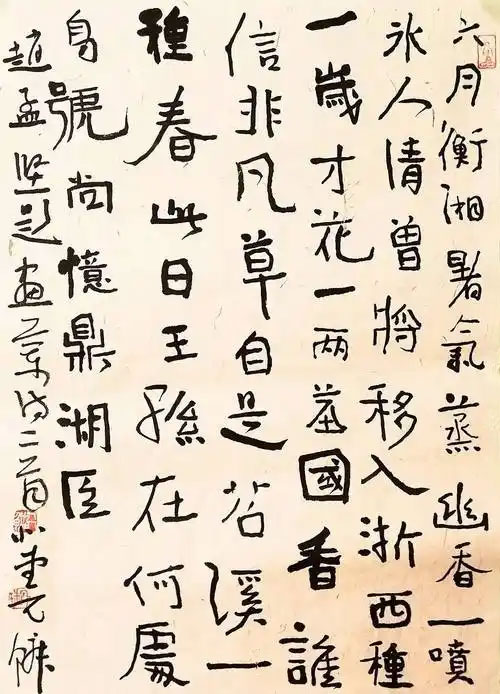 六月衡湘暑氣蒸幽香一噴
冰人清曾將移入浙西種
一歲才花一兩莖國香誰
信非凡草自是苕溪一
種春此日王孫在何處
身號尚憶鼎湖臣
趙孟堅題畫蘭詩二首